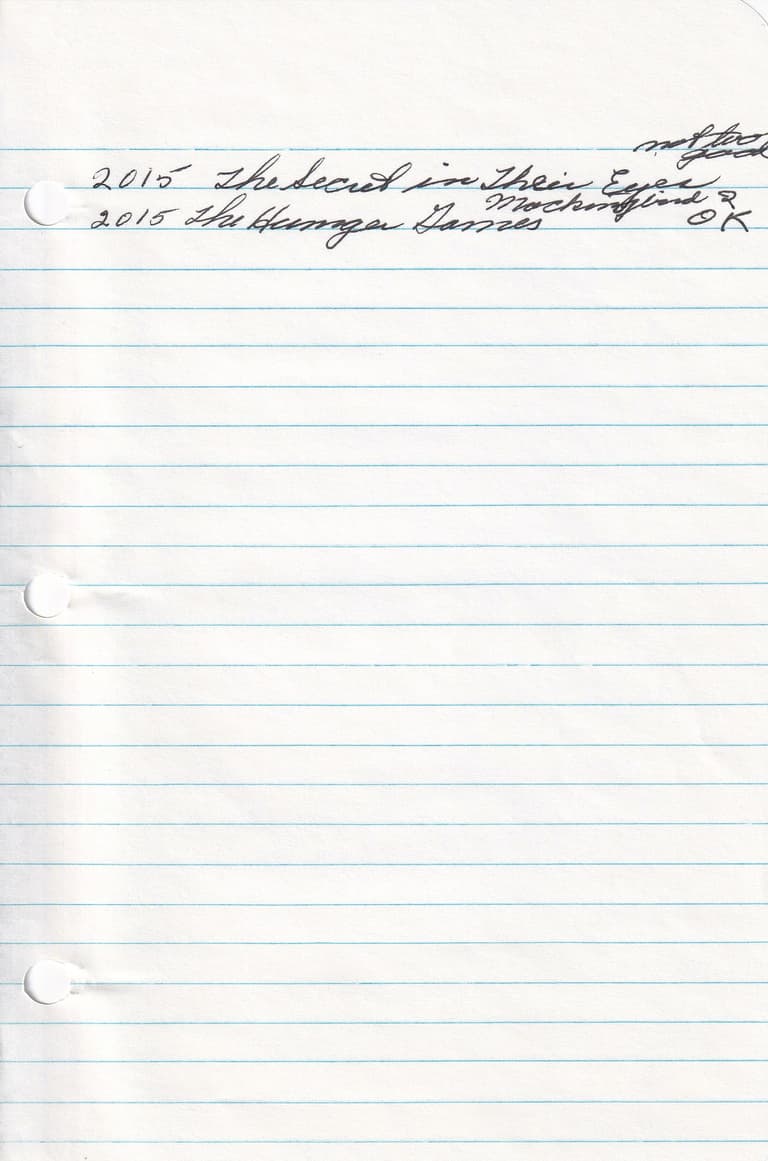 not too
good
2015 The Secret in Their Eyes
Mockingbird 2
2015 The Hunger Games OK